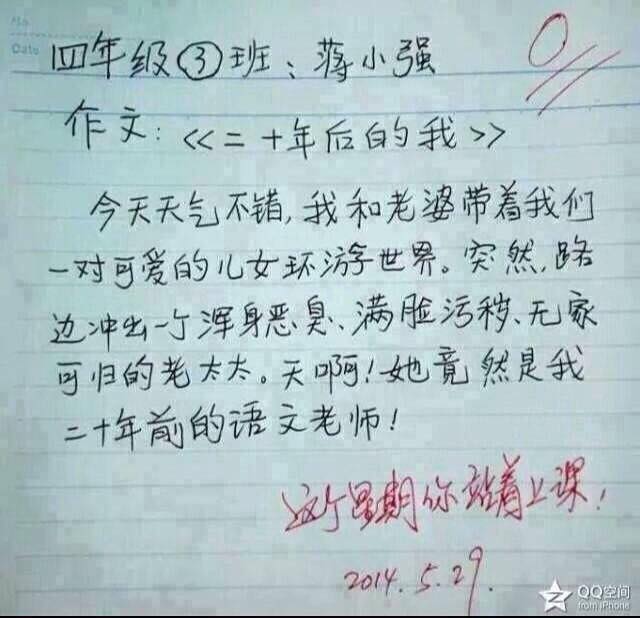 No
Date
四年级③班：蒋小强
0
作文：《二十年后的我》
今天天气不错，我和老婆带着我们
一对可爱的儿女环游世界。突然，路
边冲出一个浑身恶臭、满脸污秽、无家
可归的老太太。天啊！她竟然是我
二十年前的语文老师！
这个星期你站着上课！
2014.5.29.
QQ空间
from iPhone